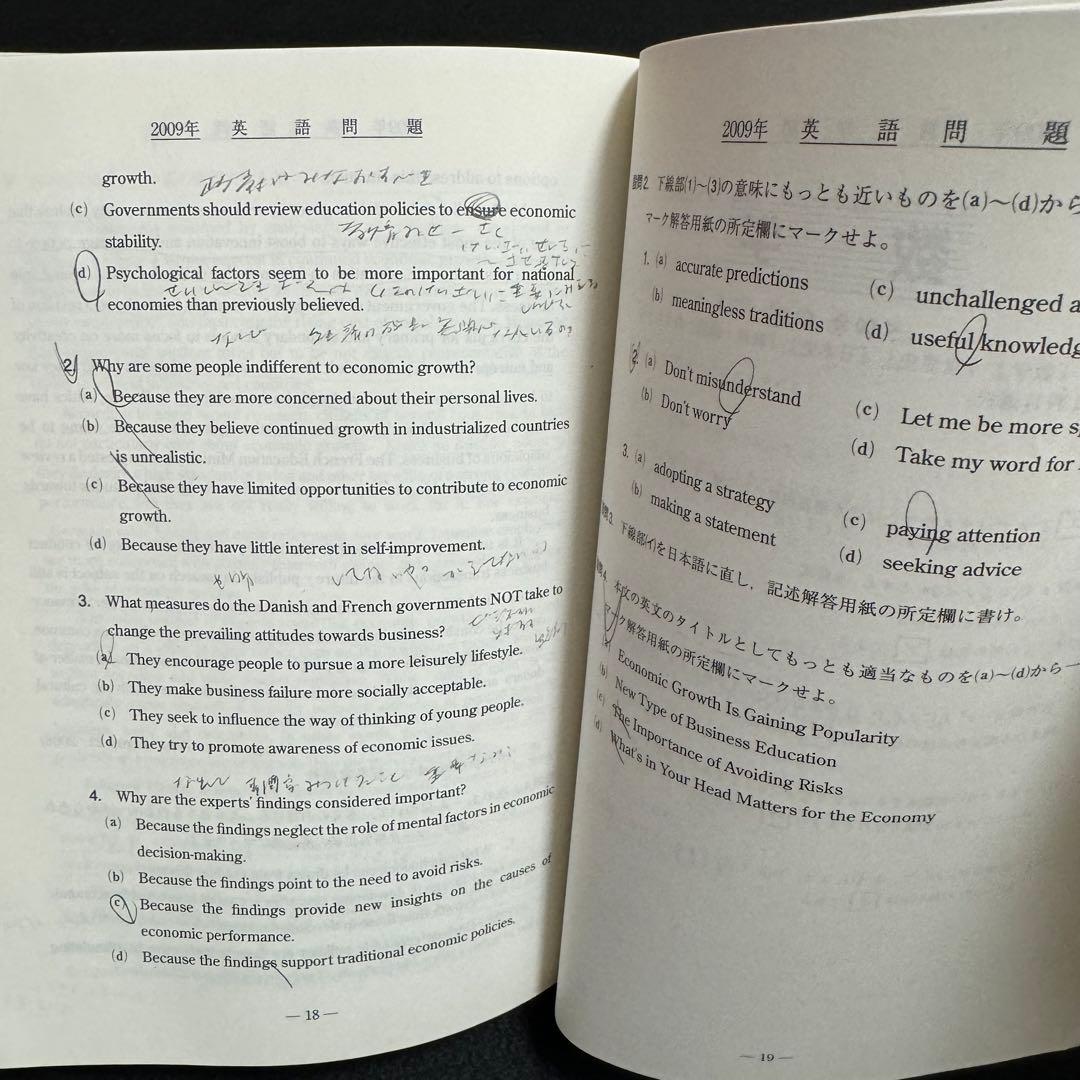 2009年 英語問題
growth.
(c) Governments should review education policies to ensure economic
stability.
(d) Psychological factors seem to be more important for national
economies than previously believed.
2. Why are some people indifferent to economic growth?
(a) Because they are more concerned about their personal lives.
(b) Because they believe continued growth in industrialized countries
is unrealistic.
(c) Because they have limited opportunities to contribute to economic
growth.
(d) Because they have little interest in self-improvement.
3. What measures do the Danish and French governments NOT take to
change the prevailing attitudes towards business?
(a) They encourage people to pursue a more leisurely lifestyle.
(b) They make business failure more socially acceptable.
(c) They seek to influence the way of thinking of young people.
(d) They try to promote awareness of economic issues.
4. Why are the experts' findings considered important?
(a) Because the findings neglect the role of mental factors in economic
decision-making.
(b) Because the findings point to the need to avoid risks.
(c) Because the findings provide new insights on the causes of
economic performance.
(d) Because the findings support traditional economic policies.
— 18 —
2009年 英語問題
設問2. 下線部(1)~(3)の意味にもっとも近いものを(a)~(d)から
マーク解答用紙の所定欄にマークせよ。
1. (a) accurate predictions (c) unchallenged
(b) meaningless traditions (d) useful knowledg
2. (a) Don't misunderstand (c) Let me be more
(b) Don't worry (d) Take my word for
3. (a) adopting a strategy (c) paying attention
(b) making a statement (d) seeking advice
設問3. 下線部(イ)を日本語に直し，記述解答用紙の所定欄に書け。
設問4. 本文の英文のタイトルとしてもっとも適当なものを(a)~(d)から一
マーク解答用紙の所定欄にマークせよ。
(a) Economic Growth Is Gaining Popularity
(b) New Type of Business Education
(c) The Importance of Avoiding Risks
(d) What's in Your Head Matters for the Economy
— 19 —